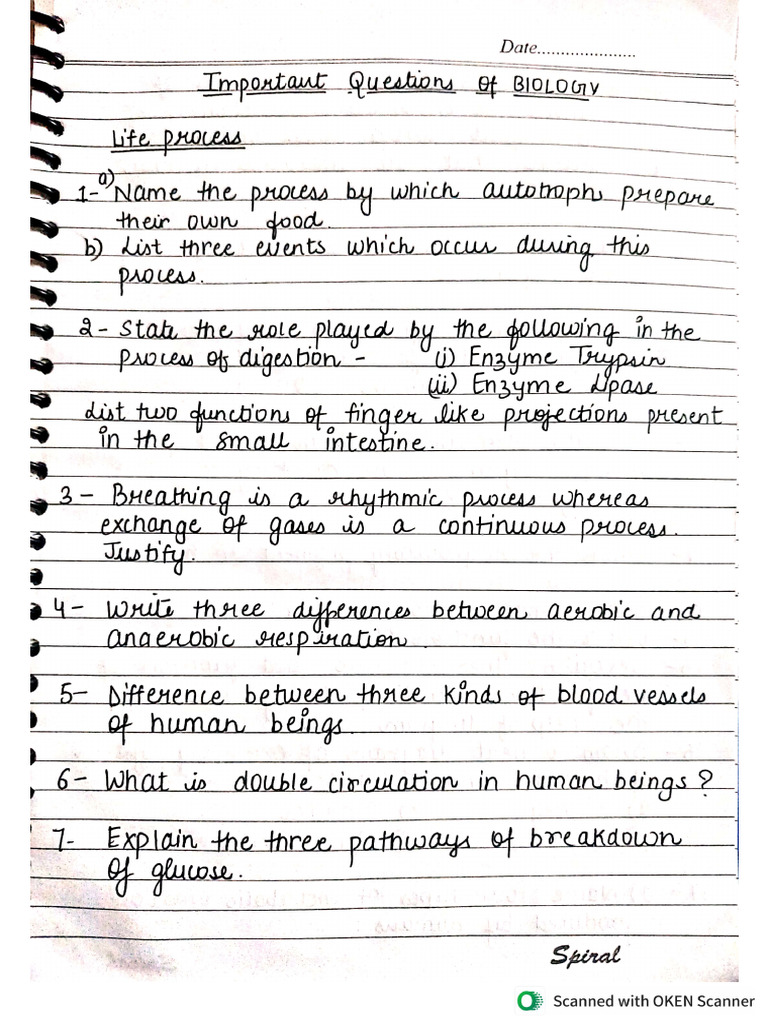 Date.....................
Important Questions of BIOLOGY
Life process
1- a) Name the process by which autotroph prepare
their own food.
b) List three events which occur during this
process.
2- State the role played by the following in the
process of digestion - (i) Enzyme Trypsin
(ii) Enzyme Lipase
List two functions of finger like projections present
in the small intestine.
3- Breathing is a rhythmic process whereas
exchange of gases is a continuous process.
Justify.
4- Write three differences between aerobic and
anaerobic respiration.
5- Difference between three kinds of blood vessels
of human beings.
6- What is double circulation in human beings?
7- Explain the three pathways of breakdown
of glucose.
Spiral
Scanned with OKEN Scanner